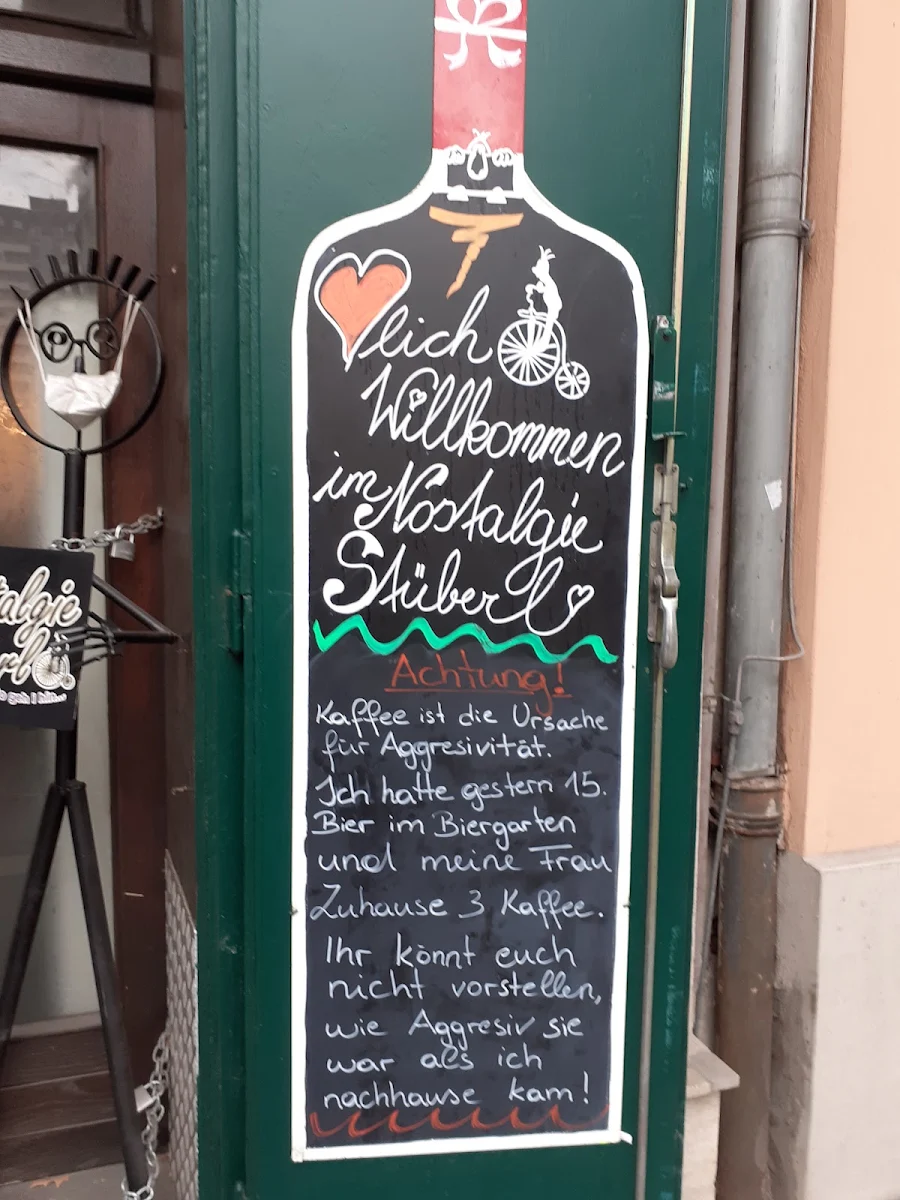 lich
Willkommen
im Nostalgie
Stüberl
Achtung!
Kaffee ist die Ursache
für Aggresivität.
Ich hatte gestern 15.
Bier im Biergarten
und meine Frau
Zuhause 3 Kaffee.
Ihr könnt euch
nicht vorstellen,
wie Aggresiv sie
war als ich
nachhause kam!
talgie
rl
geh i hin...